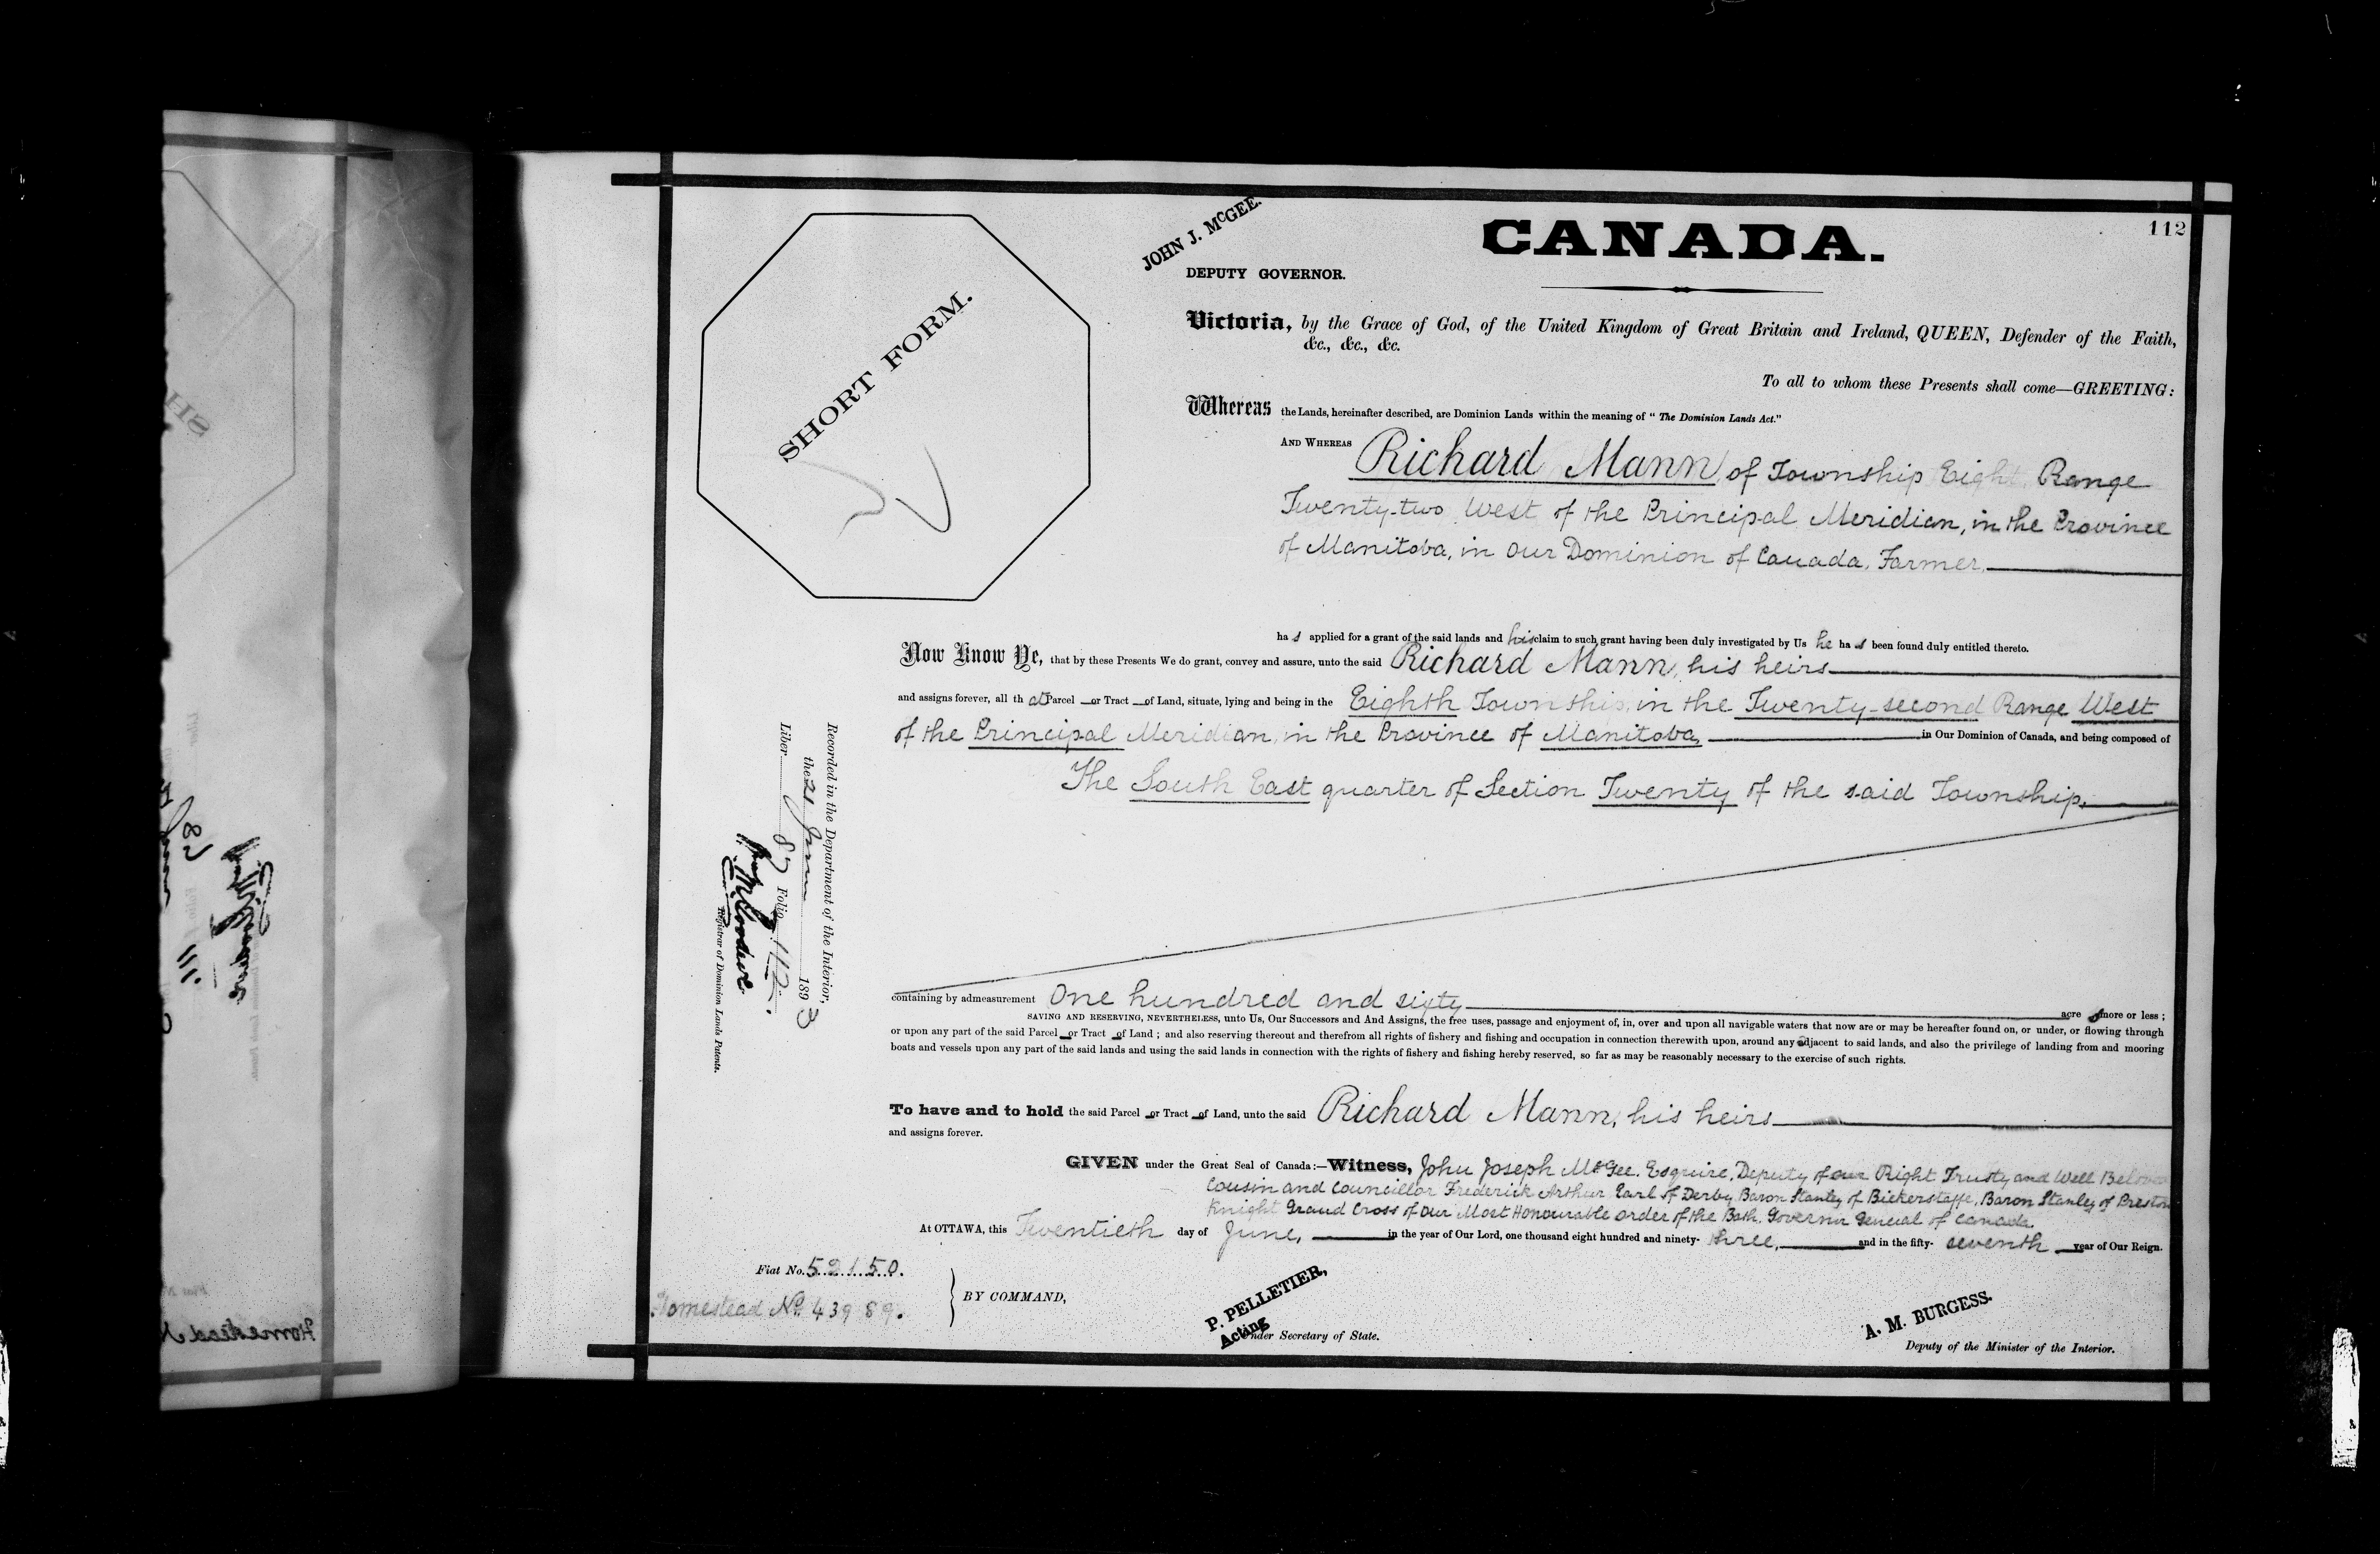 112
CANADA.
JOHN J. McGEE.
DEPUTY GOVERNOR.
SHORT FORM.
Victoria, by the Grace of God, of the United Kingdom of Great Britain and Ireland, QUEEN, Defender of the Faith,
&c., &c., &c.
To all to whom these Presents shall come—GREETING:
Whereas the Lands, hereinafter described, are Dominion Lands within the meaning of "The Dominion Lands Act."
AND WHEREAS Richard Mann, of Township Eight, Range
Twenty-two West of the Principal Meridian, in the Province
of Manitoba, in Our Dominion of Canada, Farmer,
has applied for a grant of the said lands and his claim to such grant having been duly investigated by Us he has been found duly entitled thereto.
Now Know Ye, that by these Presents We do grant, convey and assure, unto the said Richard Mann, his heirs
and assigns forever, all that Parcel or Tract of Land, situate, lying and being in the Eighth Township, in the Twenty-second Range West
of the Principal Meridian, in the Province of Manitoba, in Our Dominion of Canada, and being composed of
The South East quarter of Section Twenty of the said Township.
containing by admeasurement One hundred and sixty acres more or less;
SAVING AND RESERVING, NEVERTHELESS, unto Us, Our Successors and And Assigns, the free uses, passage and enjoyment of, in, over and upon all navigable waters that now are or may be hereafter found on, or under, or flowing through
or upon any part of the said Parcel or Tract of Land; and also reserving thereout and therefrom all rights of fishery and fishing and occupation in connection therewith upon, around any adjacent to said lands, and also the privilege of landing from and mooring
boats and vessels upon any part of the said lands and using the said lands in connection with the rights of fishery and fishing hereby reserved, so far as may be reasonably necessary to the exercise of such rights.
To have and to hold the said Parcel or Tract of Land, unto the said Richard Mann, his heirs
and assigns forever.
GIVEN under the Great Seal of Canada:—Witness, John Joseph McGee, Esquire, Deputy of our Right Trusty and Well Beloved
Cousin and Councillor Frederick Arthur, Earl of Derby, Baron Stanley of Bickerstaffe, Baron Stanley of Preston
Knight Grand Cross of our Most Honourable Order of the Bath, Governor General of Canada.
At OTTAWA, this Twentieth day of June, in the year of Our Lord, one thousand eight hundred and ninety-three, and in the fifty-seventh year of Our Reign.
Fiat No. 52150.
Homestead No. 43989.
BY COMMAND,
P. PELLETIER,
Acting Under Secretary of State.
A. M. BURGESS.
Deputy of the Minister of the Interior.
Recorded in the Department of the Interior,
the 21 June 1893
Liber 87 Folio 112.
Registrar of Dominion Lands Patents.